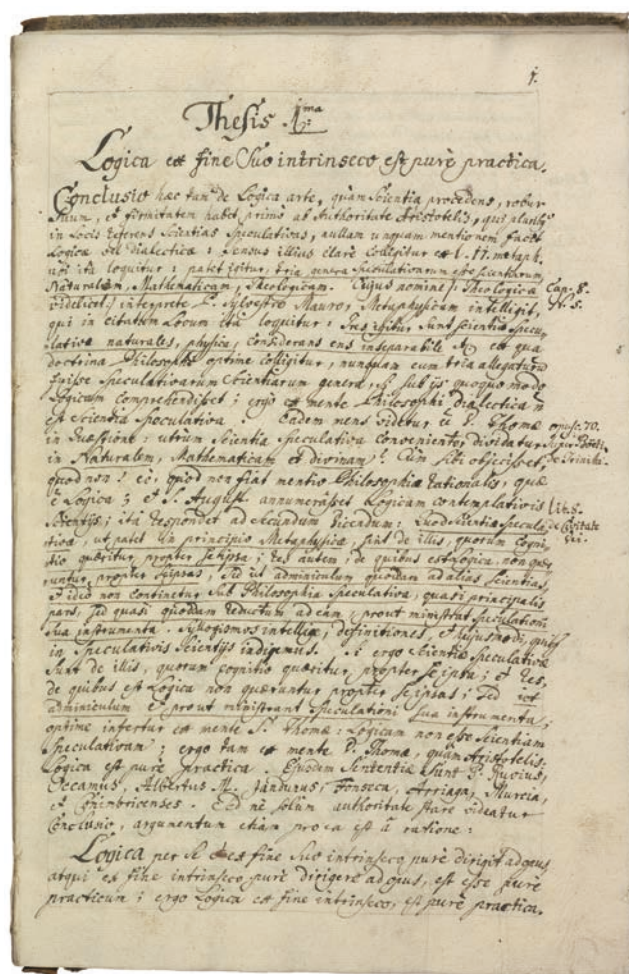 1.
Thesis 1.ma
Logica ex fine Suo intrinseco est purè practica.
Conclusio haec tum de Logica arte, quàm Scientia procedens, robur
Suum, et firmitatem habet primò ab Authoritate Aristotelis, qui
in Locis referens Scientias Speculativas, nullam unquam mentionem facit
Logicae vel dialecticae: Sensus illius clarè colligitur ex l. 11. metaph.
ubi ita loquitur: patet igitur, tria genera Speculativarum esse Scientiarum,
Naturalem, Mathematicam, Theologicam. Cujus nomine: Theologicae Cap. 8.
videlicet, interprete P. Sylvestro Mauro, Metaphysicam intelligit, N. 5.
qui in citatum Locum ità loquitur: Tres igitur sunt scientiae specu-
lativae naturales, physica, considerans ens inseparabile ex qua
doctrina Philosophi optimè colligitur, nunquam eum tria allegaturum
fuisse Speculativarum Scientiarum genera, Si Sub ijs quoquo modo
Logicam comprehendisset; ergo ex mente Philosophi dialectica
est Scientia Speculativa. Eadem mens videtur D. Thomae opusc. 70.
in Quaestione: utrum Scientia Speculativa convenienter dividatur super Boëti
in Naturalem, Mathematicam et divinam. Cùm sibi objecisset, de Trinita.
quod non: quod non fiat mentio Philosophiae rationalis, quae
Logica; et S. August. annumerâsset Logicam contemplativis Lit. 8.
Scientijs; ità respondet ad secundum dicendum: Quod Scientiae Specula- de Civitate
tivae, ut patet in principio Metaphysicae, sint de illis, quorum cogni- Dei.
tio quaeritur propter se ipsa; res autem, de quibus est Logica, non quae-
runtur propter Seipsas, Sed ut adminiculum quoddam ad alias Scientias,
et ideo non continetur Sub Philosophia Speculativa, quasi principalis
pars, sed quasi quoddam reductum ad eam, prout ministrat Speculationi
Sua instrumenta. Syllogismos intellige, definitiones, et hujusmodi, quibus
in Speculativis Scientijs indigemus. Si ergo Scientiae Speculativae
Sunt de illis, quorum cognitio quaeritur propter se ipsa; et res,
de quibus est Logica non quaeruntur propter se ipsas; Sed
adminiculum et prout ministrant Speculationi sua instrumenta;
optimè infertur ex mente S. Thomae: Logicam non esse Scientiam
Speculativam; ergo tam ex mente D. Thomae, quàm Aristotelis
Logica est purè practica. Ejusdem Sententiae Sunt P.
Occamus, Albertus M. Jandunus, Fonseca, Arriaga, Murcia,
et Conimbricenses. Sed nè solum authoritate stare videatur
Conclusio, argumentum etiam est à ratione:
Logica per se ex fine Suo intrinseco purè dirigit ad opus,
atqui ex fine intrinseco purè dirigere ad opus, est esse purè
practicum; ergo Logica ex fine intrinseco, est purè practica.